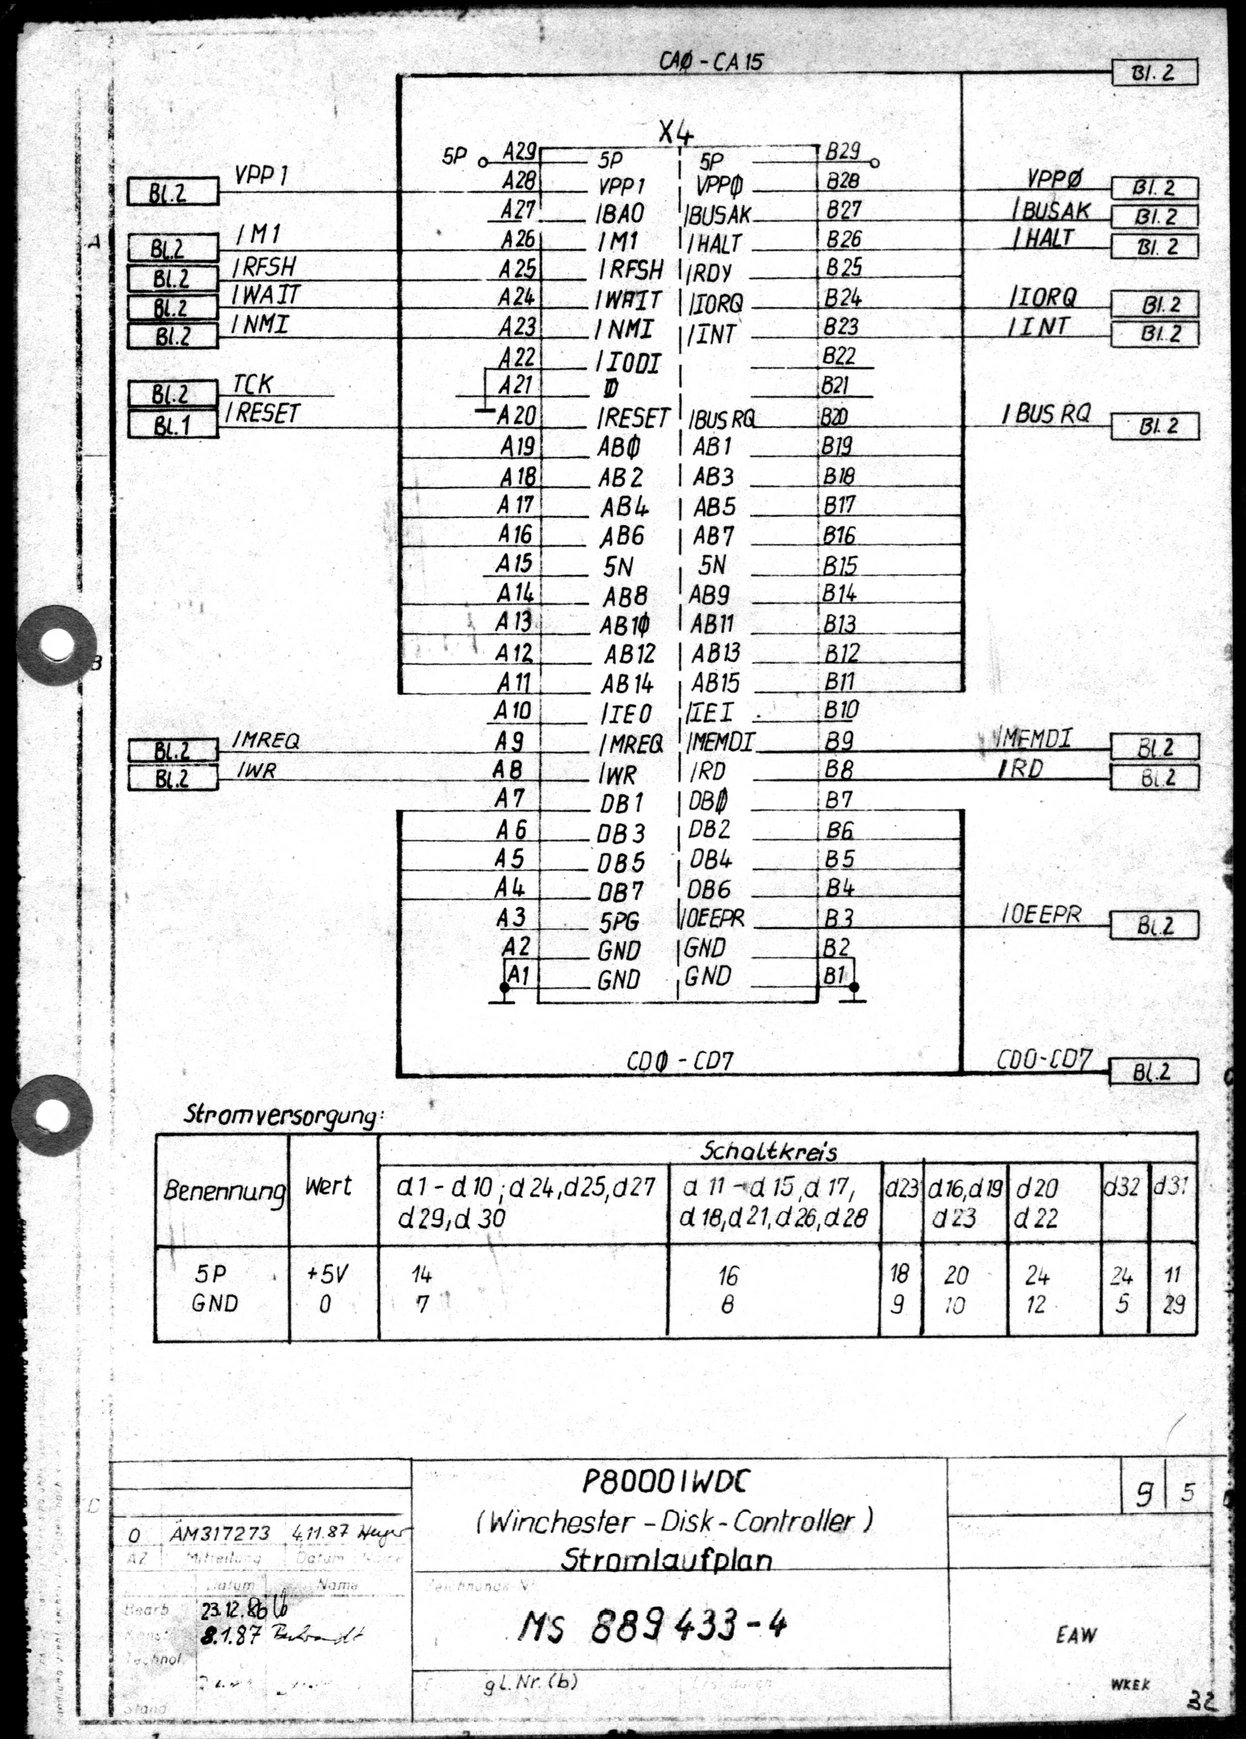 CAØ - CA15
Bl. 2
X4
5P A29 5P 5P B29
Bl.2 VPP1 A28 VPP1 VPPØ B28 VPPØ Bl. 2
A27 /BAO /BUSAK B27 /BUSAK Bl. 2
A Bl.2 /M1 A26 /M1 /HALT B26 /HALT Bl. 2
Bl.2 /RFSH A25 /RFSH /RDY B25
Bl.2 /WAIT A24 /WAIT /IORQ B24 /IORQ Bl. 2
Bl.2 /NMI A23 /NMI /INT B23 /INT Bl. 2
A22 /IODI B22
Bl.2 TCK A21 Ø B21
Bl.1 /RESET A20 /RESET /BUSRQ B20 /BUSRQ Bl. 2
A19 ABØ AB1 B19
A18 AB2 AB3 B18
A17 AB4 AB5 B17
A16 AB6 AB7 B16
A15 5N 5N B15
A14 AB8 AB9 B14
A13 AB1Ø AB11 B13
B A12 AB12 AB13 B12
A11 AB14 AB15 B11
A10 /IEO /IEI B10
Bl.2 /MREQ A9 /MREQ /MEMDI B9 /MEMDI Bl.2
Bl.2 /WR A8 /WR /RD B8 /RD Bl.2
A7 DB1 DBØ B7
A6 DB3 DB2 B6
A5 DB5 DB4 B5
A4 DB7 DB6 B4
A3 5PG /OEEPR B3 /OEEPR Bl.2
A2 GND GND B2
A1 GND GND B1
CDØ - CD7 CD0-CD7 Bl.2
Stromversorgung:
Schaltkreis
Benennung Wert d1 - d10 ; d24,d25,d27 d 11 - d15,d17, d23 d16,d19 d20 d32 d31
d29,d30 d18,d21,d26,d28 d23 d22
5P +5V 14 16 18 20 24 24 11
GND 0 7 8 9 10 12 5 29
P8000/WDC
9 5
(Winchester - Disk - Controller)
C
0 ÄM317273 4.11.87
Stromlaufplan
AZ Mitteilung Datum Name
Datum Name
Zeichnungs Nr.
Bearb 23.12.86
8.1.87
MS 889 433-4
EAW
Technol
gl.Nr.(b)
Stand
WKEK
32